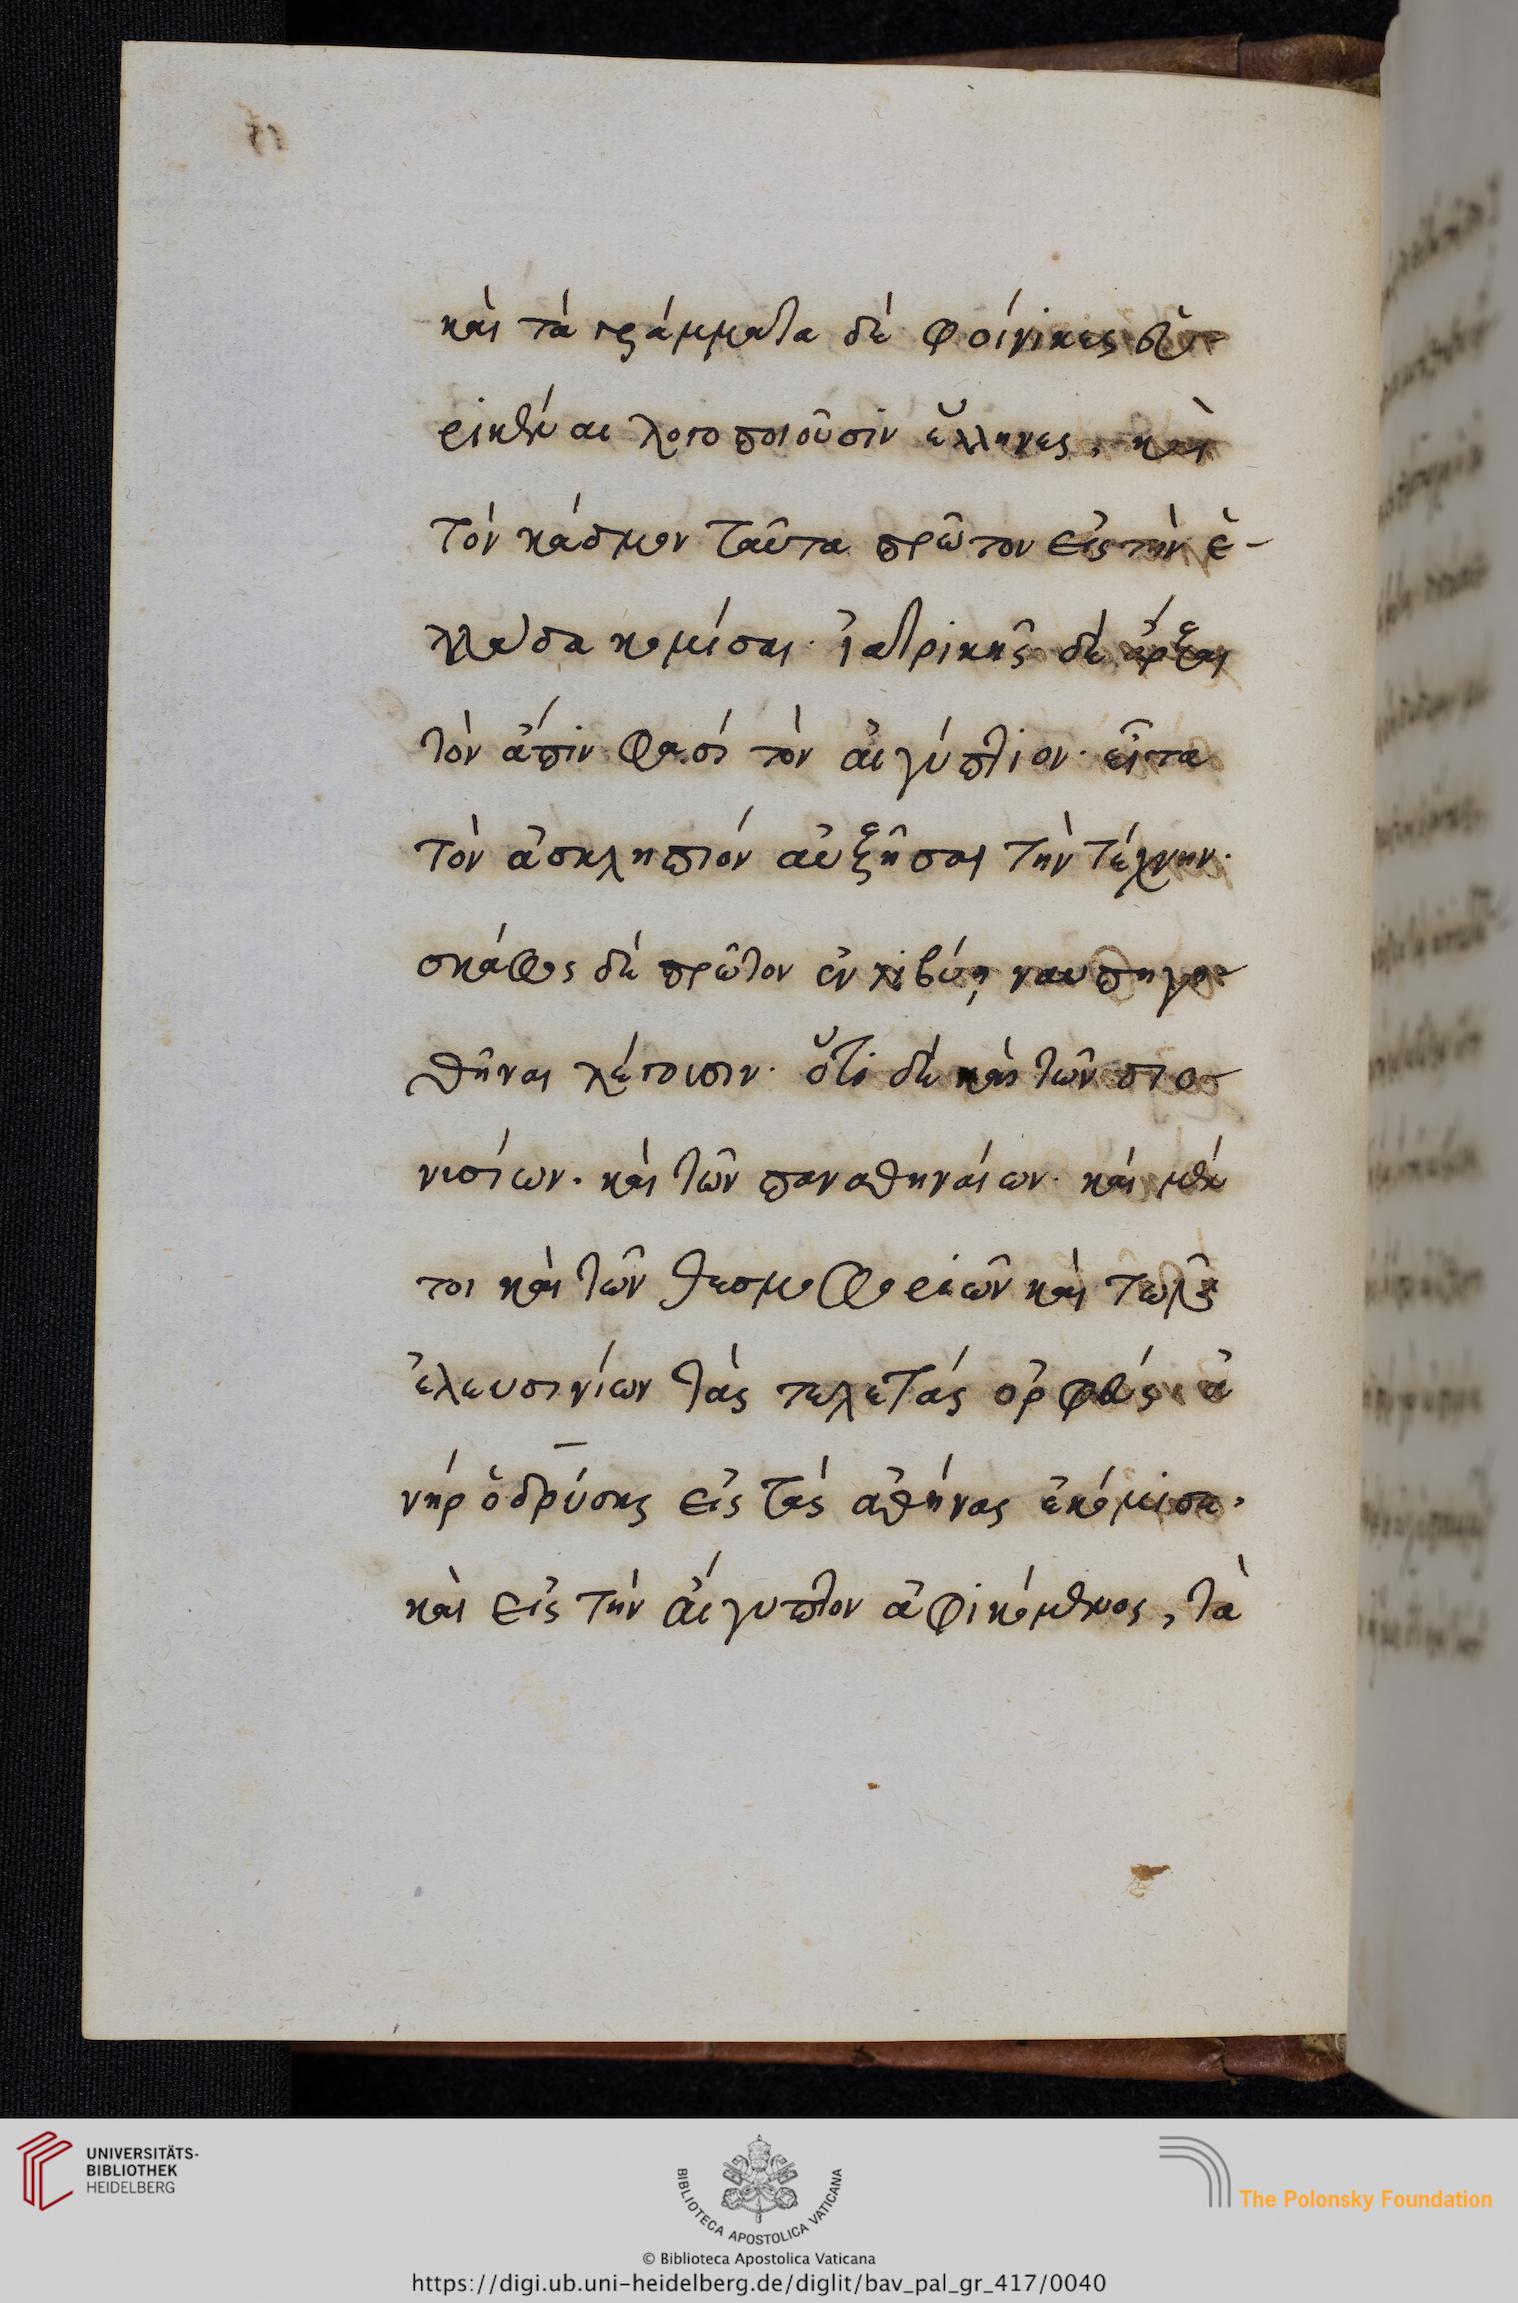 καὶ τὰ γράμματα δὲ φοίνικες εὑ-
ρηκέναι λογοποιοῦσιν ἕλληνες, καὶ
τὸν κάδμον ταῦτα πρῶτον εἰς τὴν ἑ-
λλάδα κομίσαι· ἰατρικῆς δὲ ἄρξαι
τὸν ἄπιν φασί τὸν αἰγύπτιον· εἶτα
τὸν ἀσκληπιόν αὐξῆσαι τὴν τέχνην·
σκάφος δὲ πρῶτον ἐν λιβύῃ ναυπηγη-
θῆναι λέγουσιν· ὅτι δὲ καὶ τῶν διο-
νυσίων· καὶ τῶν παναθηναίων· καὶ μέν
τοι καὶ τῶν θεσμοφορίων καὶ τῶν
ἐλευσινίων τὰς τελετάς ὀρφεύς ἀ
νήρ ὀδρύσης εἰς τὰς ἀθήνας ἐκόμισε,
καὶ εἰς τὴν αἴγυπτον ἀφικόμενος, τὰ
UNIVERSITÄTS-
BIBLIOTHEK
HEIDELBERG
BIBLIOTECA APOSTOLICA VATICANA
The Polonsky Foundation
© Biblioteca Apostolica Vaticana
https://digi.ub.uni-heidelberg.de/diglit/bav_pal_gr_417/0040